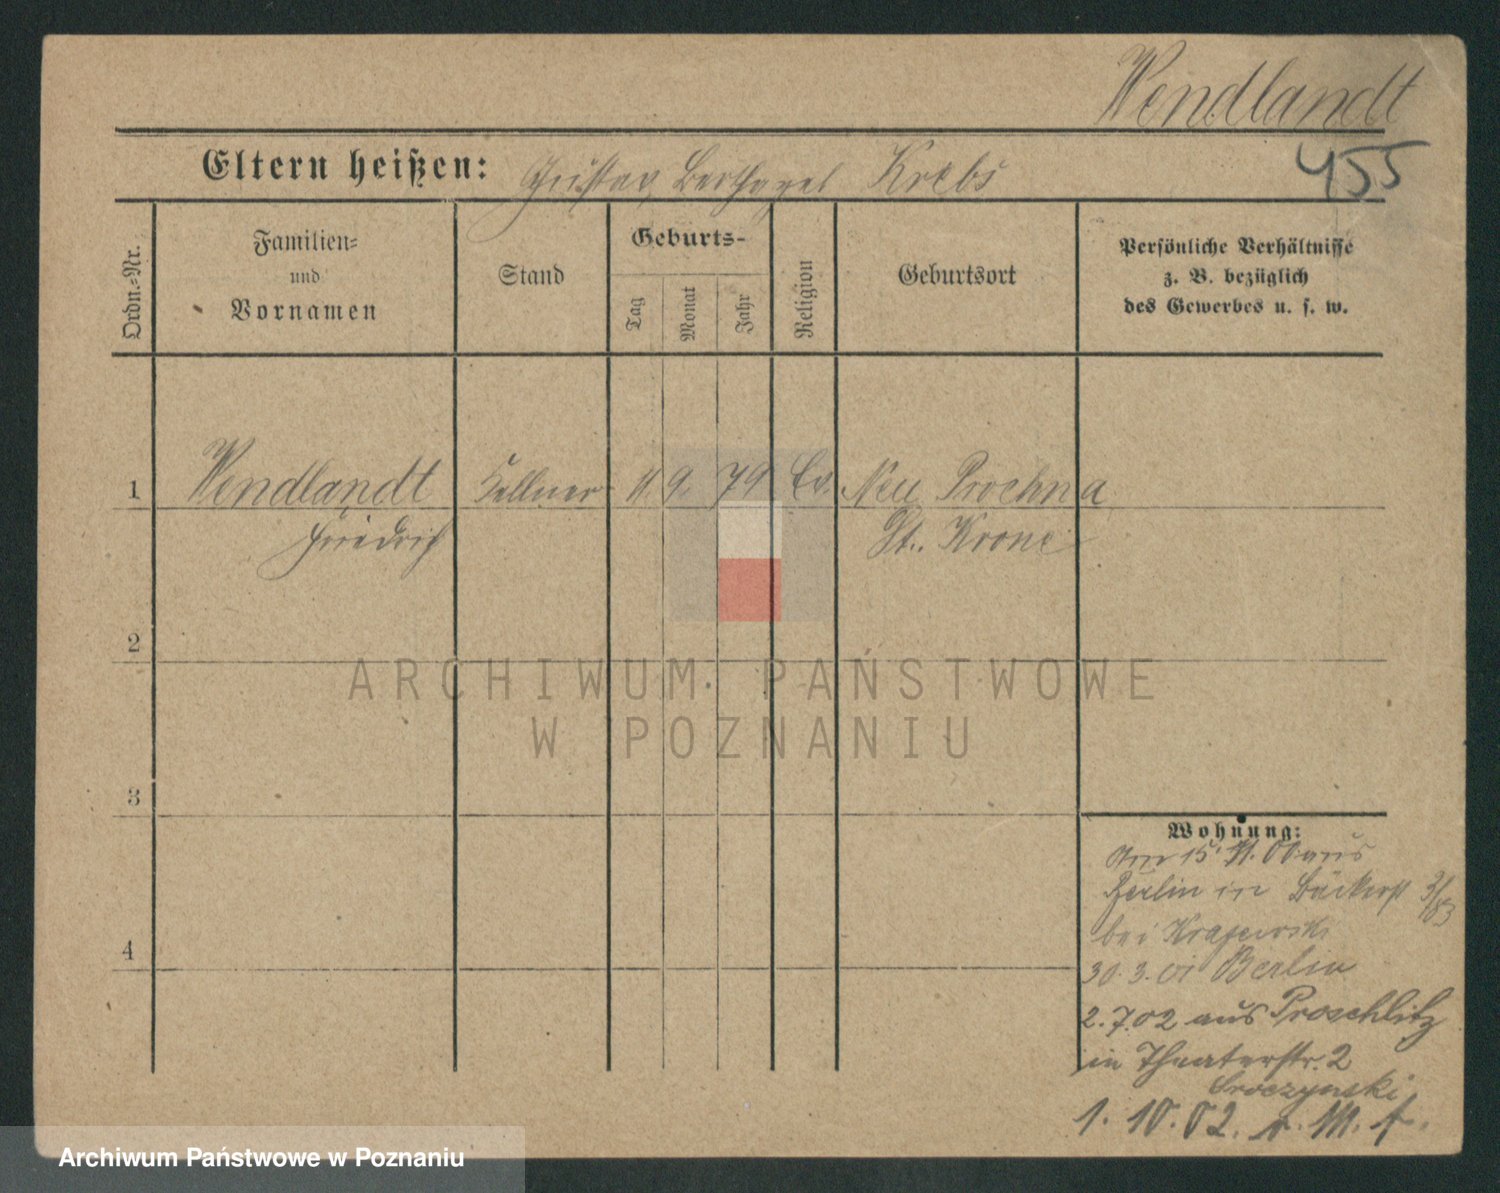 Wendlandt
455
Eltern heißen: Gustav, Krebs
Ordn.=Nr.
Familien=
und
Vornamen
Stand
Geburts-
Tag
Monat
Jahr
Religion
Geburtsort
Persönliche Verhältnisse
z. B. bezüglich
des Gewerbes u. s. w.
1 Wendlandt Kellner 11. 9. 79 Ev. Neu Prochna
Friedrich Dt. Krone
2
3
4
Wohnung:
Am 15. 11. 00 aus
Berlin in Bäckerst
bei Krajewski
30. 3. 01 Berlin
2. 7. 02 aus Proschlitz
in Theaterstr. 2
1. 10. 02.
ARCHIWUM PAŃSTWOWE
W POZNANIU
Archiwum Państwowe w Poznaniu